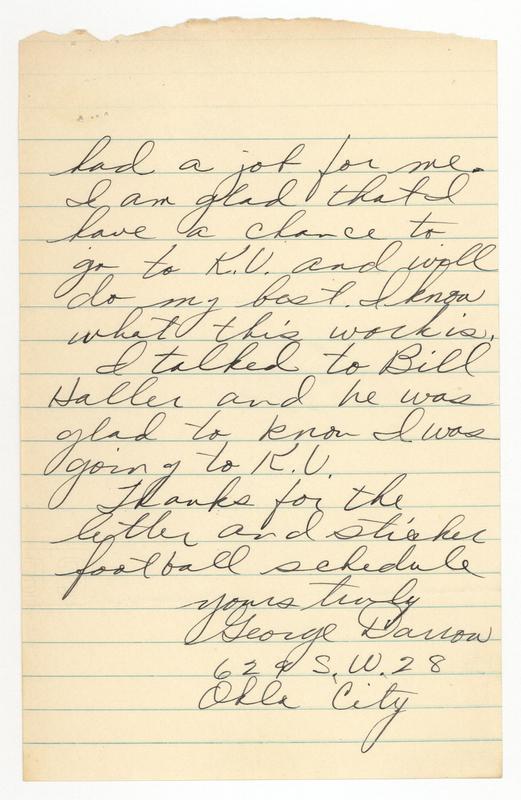 had a job for me.
I am glad that I
have a chance to
go to K.U. and will
do my best. I know
what this work is.
I talked to Bill
Haller and he was
glad to know I was
going to K.U.
Thanks for the
letter and sticker
football schedule
yours truly
George Darrow
629 S.W. 28
Okla City